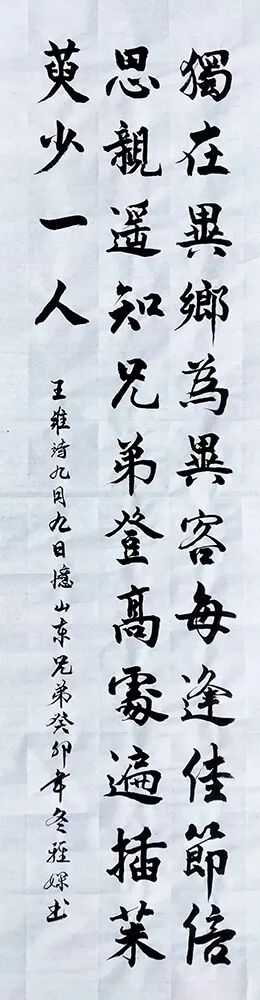 獨在異鄉為異客每逢佳節倍
思親遥知兄弟登高處遍插茱
萸少一人
王維詩九月九日憶山东兄弟癸卯年冬雅书